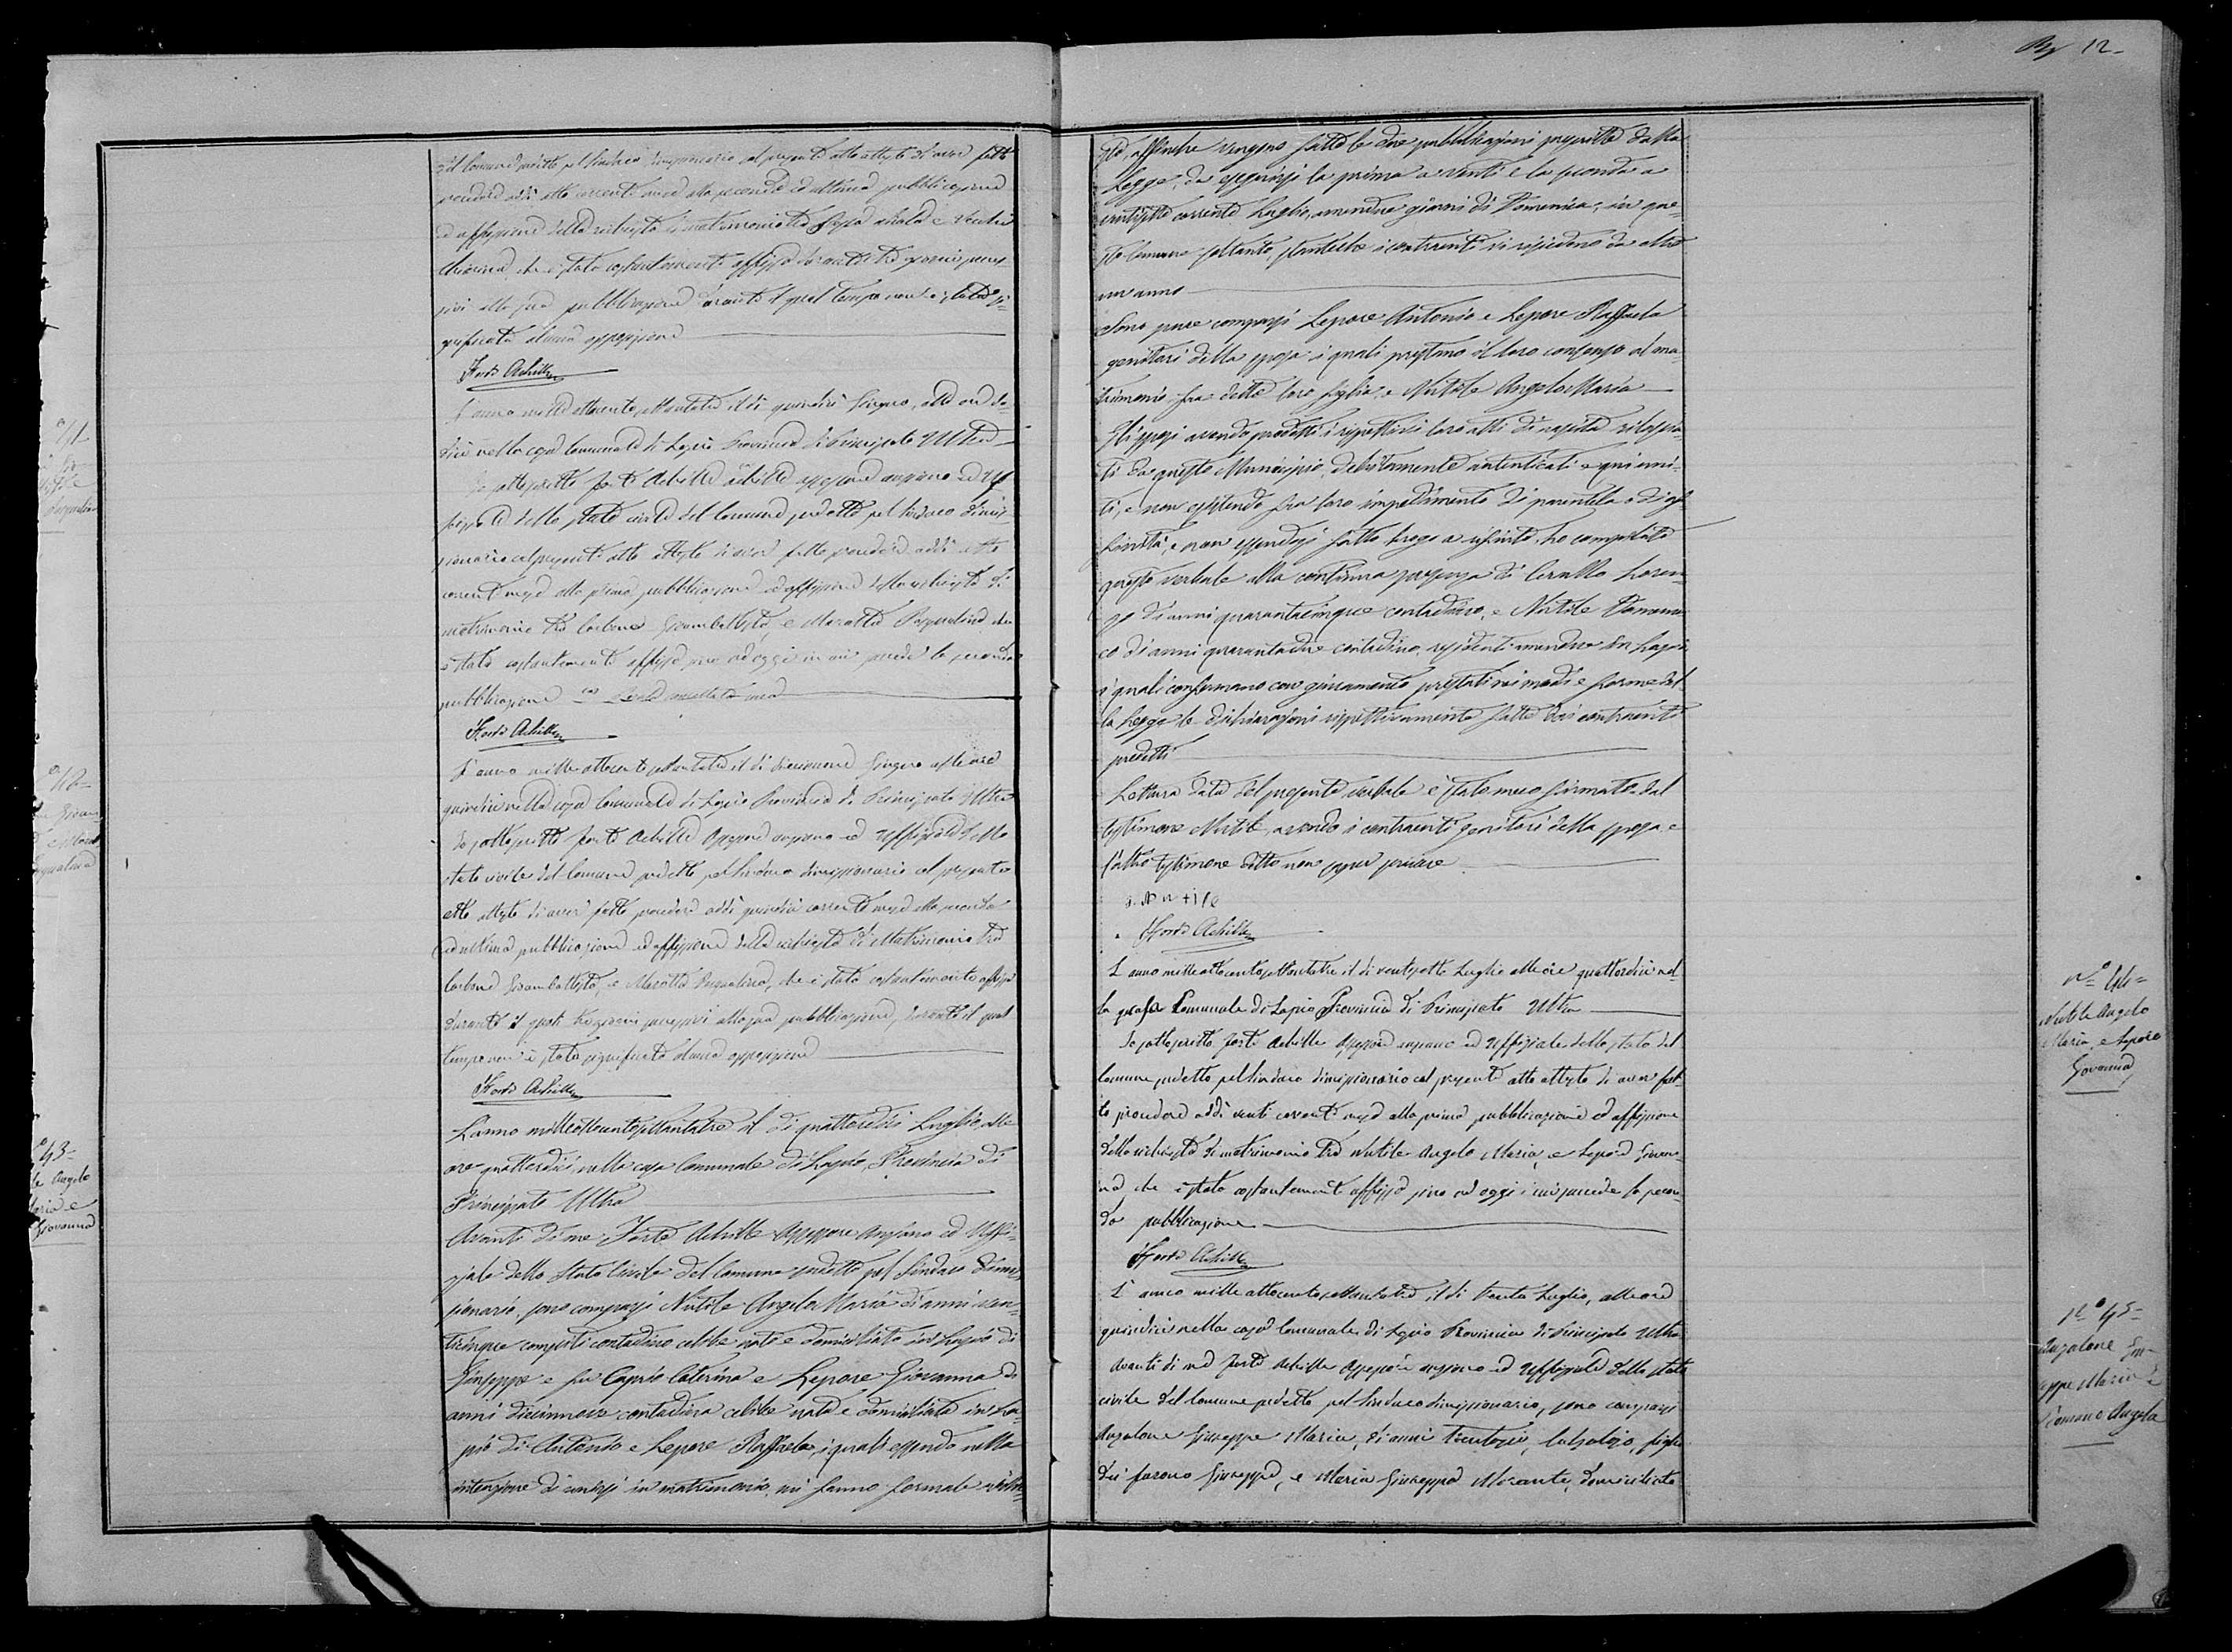 12-
del Comune predetto pel Sindaco dimissionario col presente atto attesto di aver fatto
procedere addì otto corrente mese alla seconda ed ultima pubblicazione
ed affissione della richiesta di matrimonio tra
che è stata costantemente affissa durante tre giorni succes-
sivi alla sua pubblicazione durante il qual tempo non è stata si-
gnificata alcuna opposizione
Forte Achille
L'anno mille ottocento settantatre il dì quindici Giugno, alle ore do-
dici nella casa Comunale di Lapio Provincia di Principato Ultra
Io sottoscritto Forte Achille assessore anziano ed Uf-
fiziale dello stato civile del Comune predetto pel Sindaco dimis-
sionario col presente atto attesto di aver fatto procedere addì otto
corrente mese alla prima pubblicazione ed affissione della richiesta di
matrimonio tra Carbone Giovambattista, e Marotta Pasqualina che
è stata costantemente affissa sino ad oggi in cui succede la seconda
pubblicazione
Forte Achille
L'anno mille ottocento settantatre il dì diciannove Giugno alle ore
quindici nella casa Comunale di Lapio Provincia di Principato Ultra
Io sottoscritto Forte Achille Assessore anziano ed Uffiziale dello
stato civile del Comune predetto pel Sindaco dimissionario col presente
atto attesto di aver fatto procedere addì quindici corrente mese alla seconda
ed ultima pubblicazione ed affissione della richiesta di Matrimonio tra
Carbone Giovambattista, e Marotta Pasqualina, che è stata costantemente affissa
durante tre giorni successivi alla sua pubblicazione, durante il qual
tempo non è stata significata alcuna opposizione
Forte Achille
L'anno milleottocentosettantatre il dì quattordici Luglio, alle
ore quattordici nella casa Comunale di Lapio, Provincia di
Principato Ultra
Avanti di me Forte Achille Assessore Anziano ed Uffi-
ziale dello Stato Civile del Comune predetto pel Sindaco dimis-
sionario, sono comparsi Nutile Angelo Maria di anni ven-
ticinque compiti contadino celibe nato e domiciliato in Lapio di
Giuseppe e fu Caprio Caterina e Lepore Giovanna di
anni diciannove contadina celibe nata e domiciliata in La-
pio di Antonio e Lepore Raffaela, i quali essendo nella
intenzione di unirsi in matrimonio, mi fanno formale richie-
sta, affinchè vengano fatte le due pubblicazioni prescritte dalla
Legge, da eseguirsi la prima a venti e la seconda a
ventisette corrente Luglio, amendue giorni di Domenica, in que-
sto Comune soltanto, stantechè i contraenti vi risiedono da oltre
un anno
Sono pure comparsi Lepore Antonio e Lepore Raffaela
genitori della sposa i quali prestano il loro consenso al ma-
trimonio fra detta loro figlia, e Nutile Angelo Maria
Gli sposi avendo prodotti i rispettivi loro atti di nascita rilascia-
ti da questo Municipio, debitamente autenticati e qui uni-
ti, e non esistendo fra loro impedimento di parentela o di af-
finità, e non essendosi fatto luogo a rifiuto, ho compilato
questo verbale alla continua presenza di Cerullo Loren-
zo di anni quarantacinque contadino, e Nutile Domeni-
co di anni quarantadue contadino, residenti amendue in Lapio
i quali confermano con giuramento prestato nei modi e forme del-
la Legge le dichiarazioni rispettivamente fatte dai contraenti
predetti
Lettura data del presente verbale è stato meco firmato dal
testimone Nutile, avendo i contraenti genitori della sposa, e
l'altro testimone detto non saper firmare
Forte Achille
L'anno milleottocentosettantatre il dì ventisette Luglio alle ore quattordici nel-
la casa Comunale di Lapio Provincia di Principato Ultra
Io sottoscritto Forte Achille Assessore anziano ed Uffiziale dello stato del
Comune predetto pel Sindaco dimissionario col presente atto attesto di aver fat-
to procedere addì venti corrente mese alla prima pubblicazione ed affissione
della richiesta di matrimonio tra Nutile Angelo Maria, e Lepore Giovan-
na che è stata costantemente affissa sino ad oggi in cui succede la secon-
da pubblicazione
Forte Achille
L'anno mille ottocento settantatre, il dì trenta Luglio, alle ore
quindici nella casa Comunale di Lapio Provincia di Principato Ultra
Avanti di me Forte Achille Assessore anziano ed Uffiziale dello stato
civile del Comune predetto pel Sindaco dimissionario, sono comparsi
Anzalone Giuseppe Maria, di anni trentasei, calzolajo, figlio
dei furono Giuseppe, e Maria Giuseppa Morante, domiciliato
43-
le Angelo
Maria e
Giovanna
N° 44-
Nutile Angelo
Maria, e Lepore
Giovanna
N° 45-
Anzalone Giu-
seppe Maria e
Romano Angela